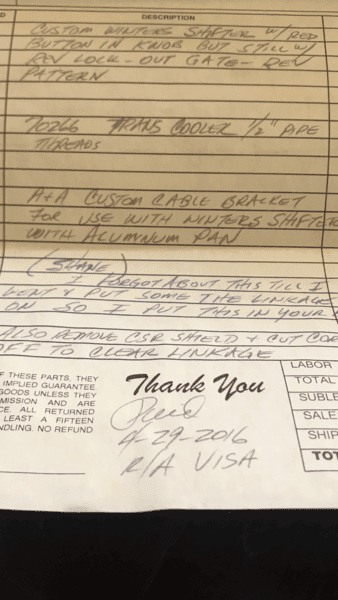 DESCRIPTION
CUSTOM WINTERS SHIFTER W/ RED
BUTTON IN KNOB BUT STILL W/
REV LOCK-OUT GATE - REV
PATTERN
70266 TRANS COOLER 1/2" PIPE
THREADS
A+A CUSTOM CABLE BRACKET
FOR USE WITH WINTERS SHIFTER
WITH ALUMINUM PAN
(SHANE)
I FORGOT ABOUT THIS TILL I
WENT & PUT SOME THE LINKAGE
ON SO I PUT THIS IN YOUR
ALSO REMOVE CSR SHIELD & CUT COR
OFF TO CLEAR LINKAGE
F THESE PARTS. THEY
IMPLIED GUARANTEE.
GOODS UNLESS THEY
MISSION AND ARE
CE. ALL RETURNED
LEAST A FIFTEEN
NDLING. NO REFUND
Thank You
4-29-2016
R/A VISA
LABOR
TOTAL
SUBLE
SALE
SHIP
TOT